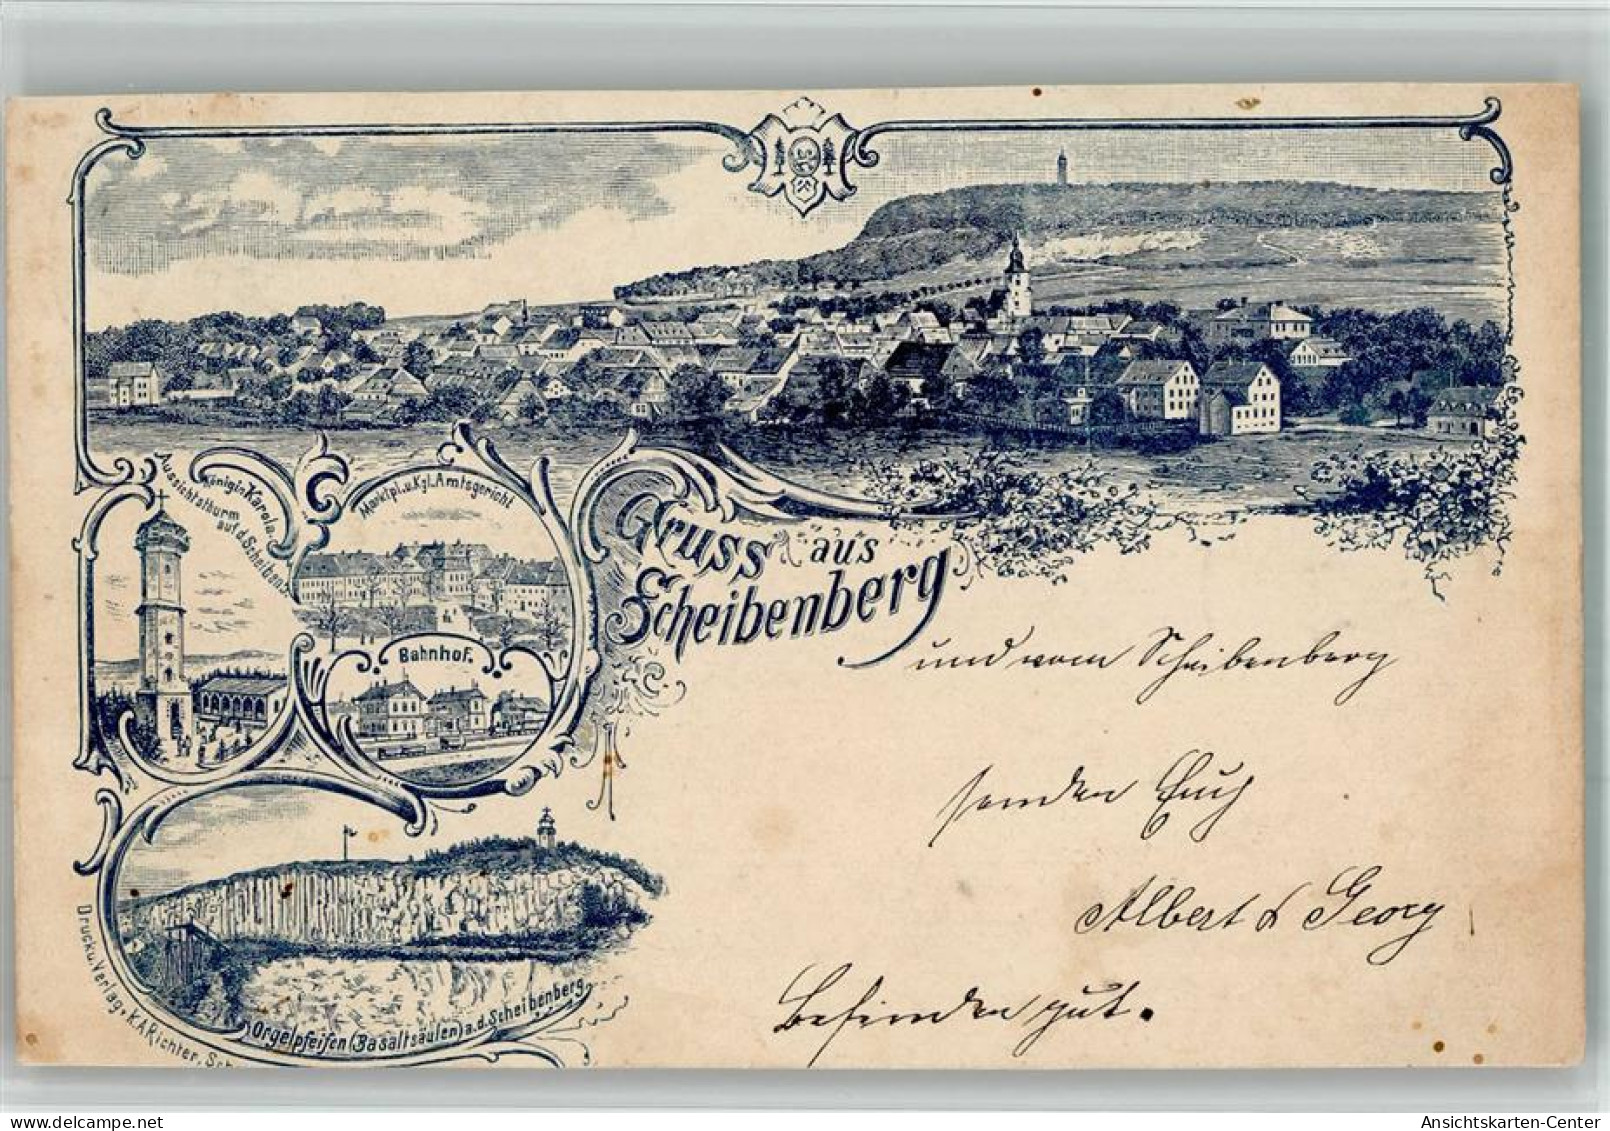 Königin Karola
Aussichtsthurm
auf d. Scheibenb.
Marktpl. u. Kgl. Amtsgericht
Bahnhof.
Gruss aus
Scheibenberg
und vom Scheibenberg
senden Euch
Albert & Georg
Befinden gut.
Orgelpfeifen (Basaltsäulen) a. d. Scheibenberg
Druck u. Verlag v. K. A. Richter, Sch
Ansichtskarten-Center